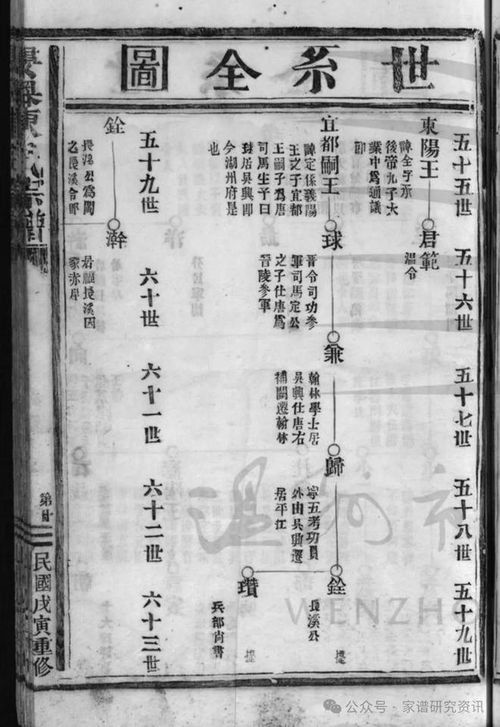 世系全圖
五十五世 五十六世 五十七世 五十八世 五十九世
東陽王 君範
諱全字承
後帝九子大
業中爲通議
郎
溫令
宜都嗣王 球 兼 歸 銓
諱定係義陽
王之子宜都
王嗣子爲唐
司馬生子曰
球居吳興即
今湖州府是
也
晉令司功參
軍司馬定公
之子仕唐爲
晉陵參軍
翰林學士居
吳興仕唐右
補闕遷翰林
寧五考功員
外由吳興遷
居平江
長溪公
瓚
兵部尚書
五十九世 六十世 六十一世 六十二世 六十三世
銓
長溪公爲閩
之長溪令即
君顧長溪因
家赤岸
氏宗譜
民國戊寅重修
溫州市
WENZHO
公众号 · 家谱研究资讯